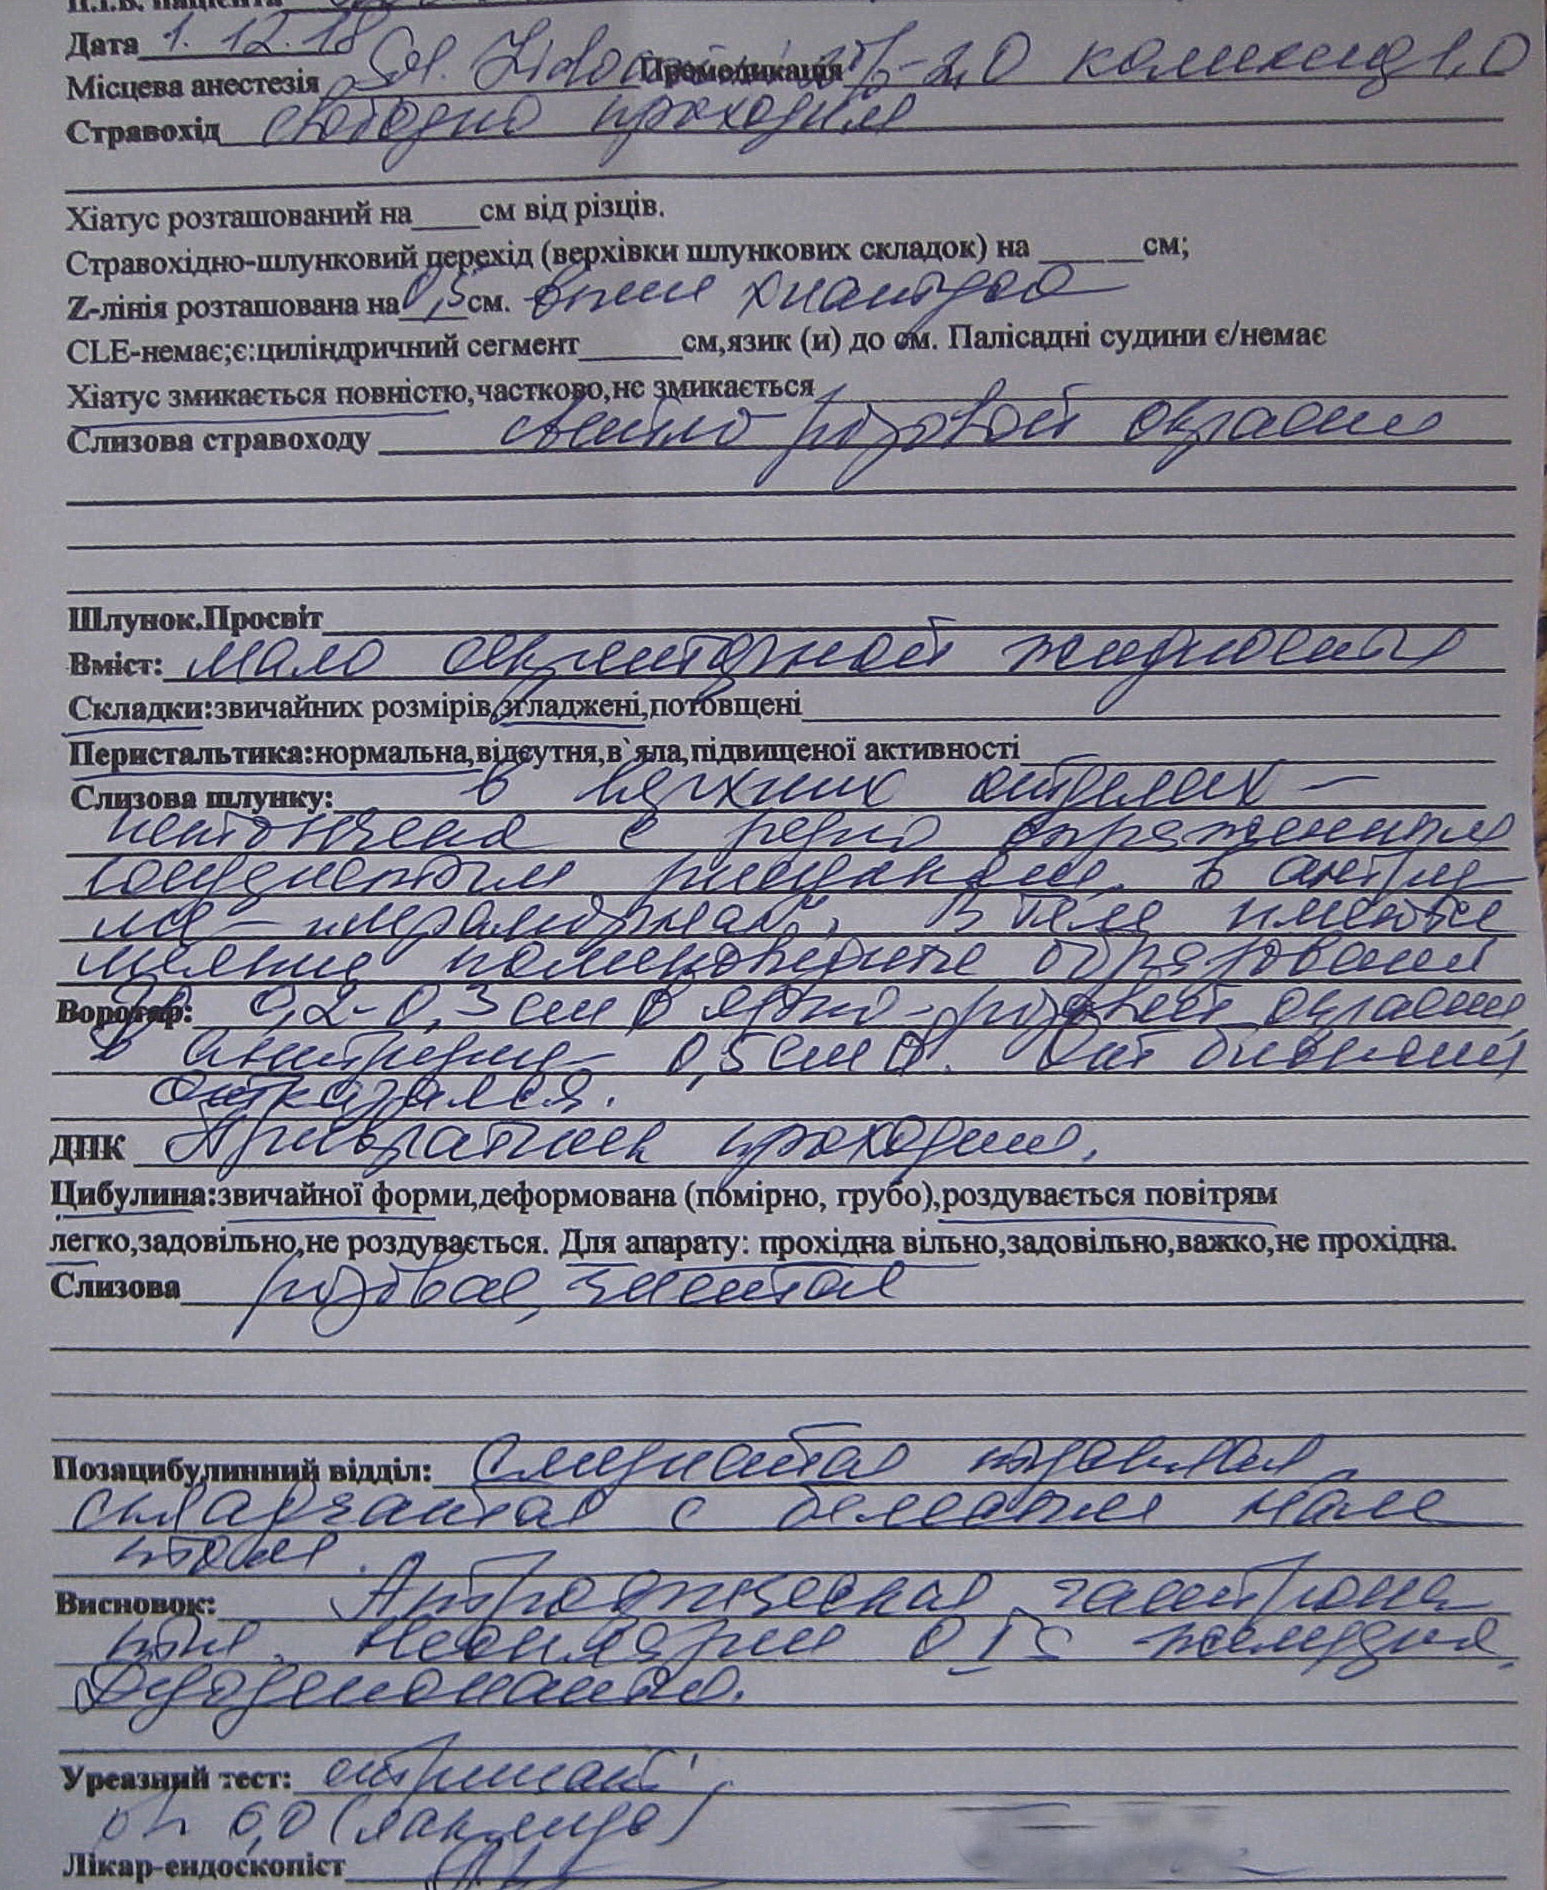 П.І.Б. пацієнта
Дата 1. 12. 18
Місцева анестезія Sol. Lidoc Премедикація % - 2,0 колікид 1,0
Стравохід свободно проходим
Хіатус розташований на____см від різців.
Стравохідно-шлунковий перехід (верхівки шлункових складок) на ______см;
Z-лінія розташована на 0,5 см. выше хиатуса
CLE-немає;є:циліндричний сегмент______см,язик (и) до см. Палісадні судини є/немає
Хіатус змикається повністю,частково,не змикається
Слизова стравоходу светло розовой окраски
Шлунок.Просвіт
Вміст: мало секреторной жидкости
Складки:звичайних розмірів,згладжені,потовщені
Перистальтика:нормальна,відсутня,в`яла,підвищеної активності
Слизова шлунку: в верхних отделах -
истончена с резко выраженным
сосудистым рисунком. в антру
ме - . В теле имеются
мелкие полиповидные образования
Воротар: до 0,2-0,3 см ярко-розовой окраски
в антруме - 0,5 см . От биопсии
отказался.
ДПК Привратник проходим.
Цибулина:звичайної форми,деформована (помірно, грубо),роздувається повітрям
легко,задовільно,не роздувається. Для апарату: прохідна вільно,задовільно,важко,не прохідна.
Слизова розовая,
Позацибулинний відділ: Слизистая
складчатая с белесым нале
том.
Висновок: Атрофическая гастропа
тия. Неоплазии 0 IS желудка.
Дуоденопатия.
Уреазний тест: отрицат.
pH 6,0 (
Лікар-ендоскопіст